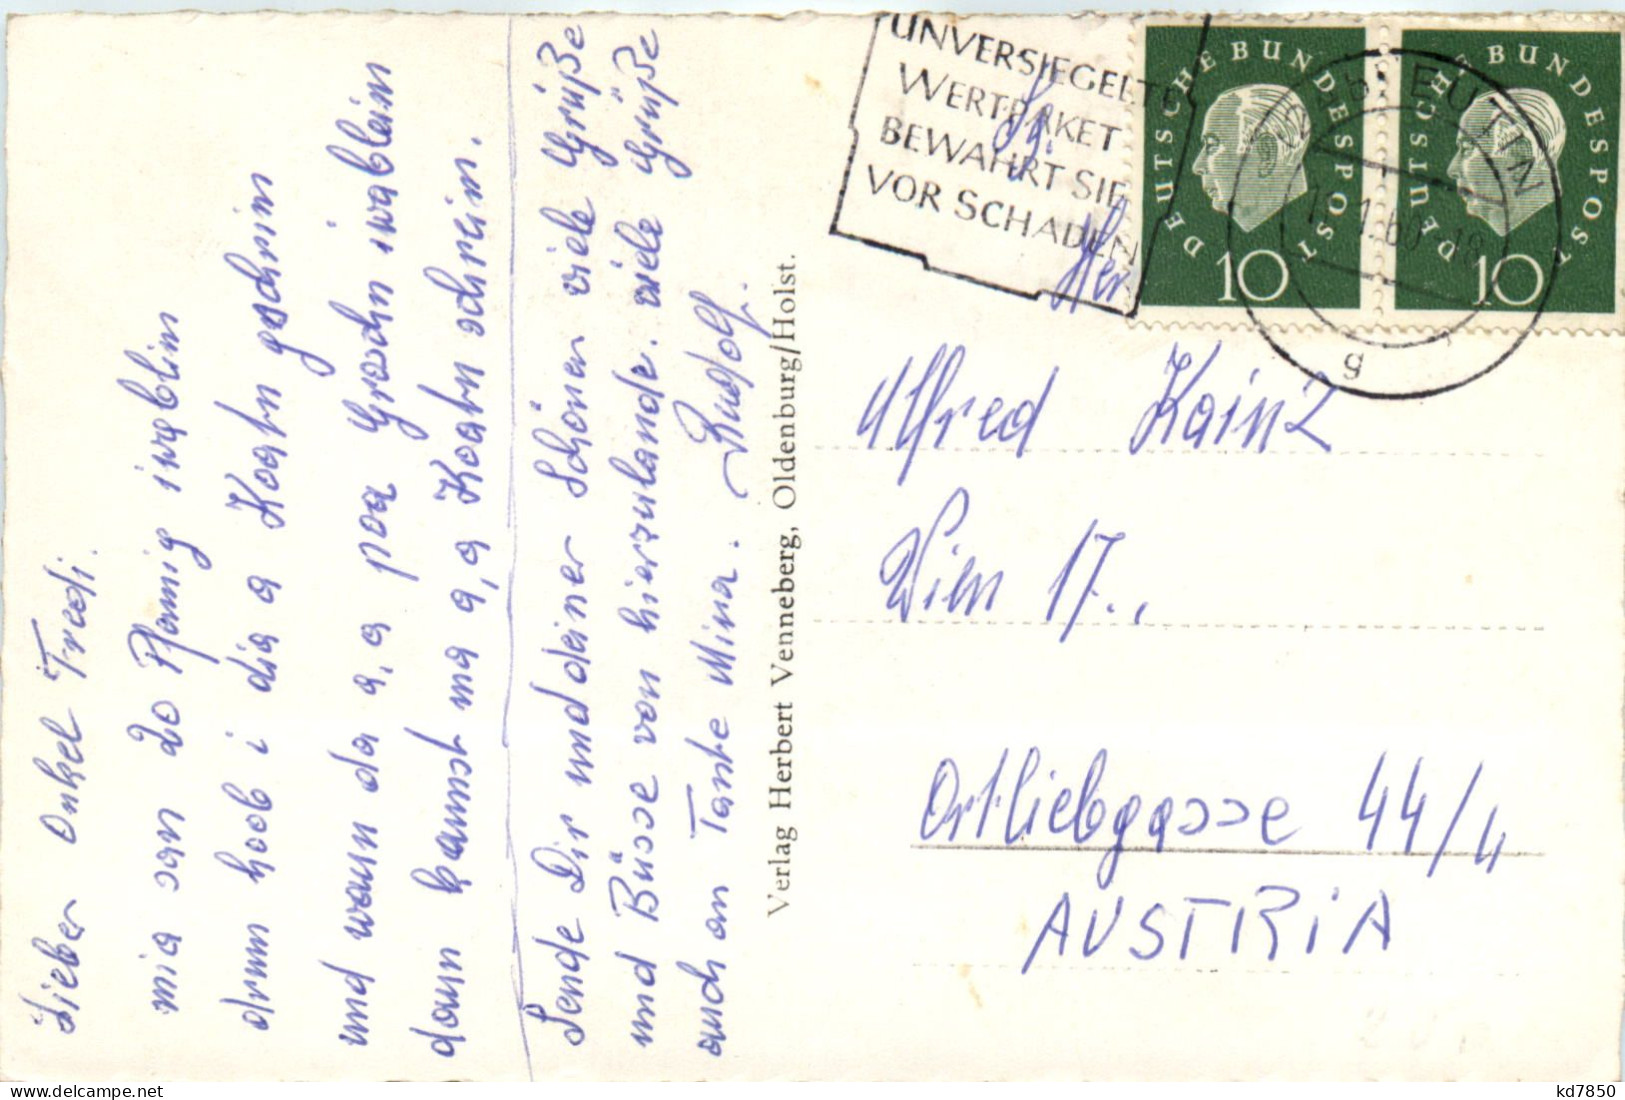 Lieber Onkel Fredi.
mia san 20 Pfannig iwablim
drum hob i dia a Koatn gschrim
und wann da a, a poa Groschn iwableim
dann kannst ma a, a Koatn schreim.
Sende Dir und deiner Schönen viele Grüße
und Büsse von hierzulande. viele Grüße
auch an Tante Mina. Rudolf.
Verlag Herbert Venneberg, Oldenburg/Holst.
UNVERSIEGELTE
WERTPAKET
BEWAHRT SIE
VOR SCHADEN
DEUTSCHE BUNDESPOST
10
DEUTSCHE BUNDESPOST
10
EUTIN
g
Alfred Kainz
Wien 17..
Ortliebgasse 44/4
AUSTRIA
kd7850